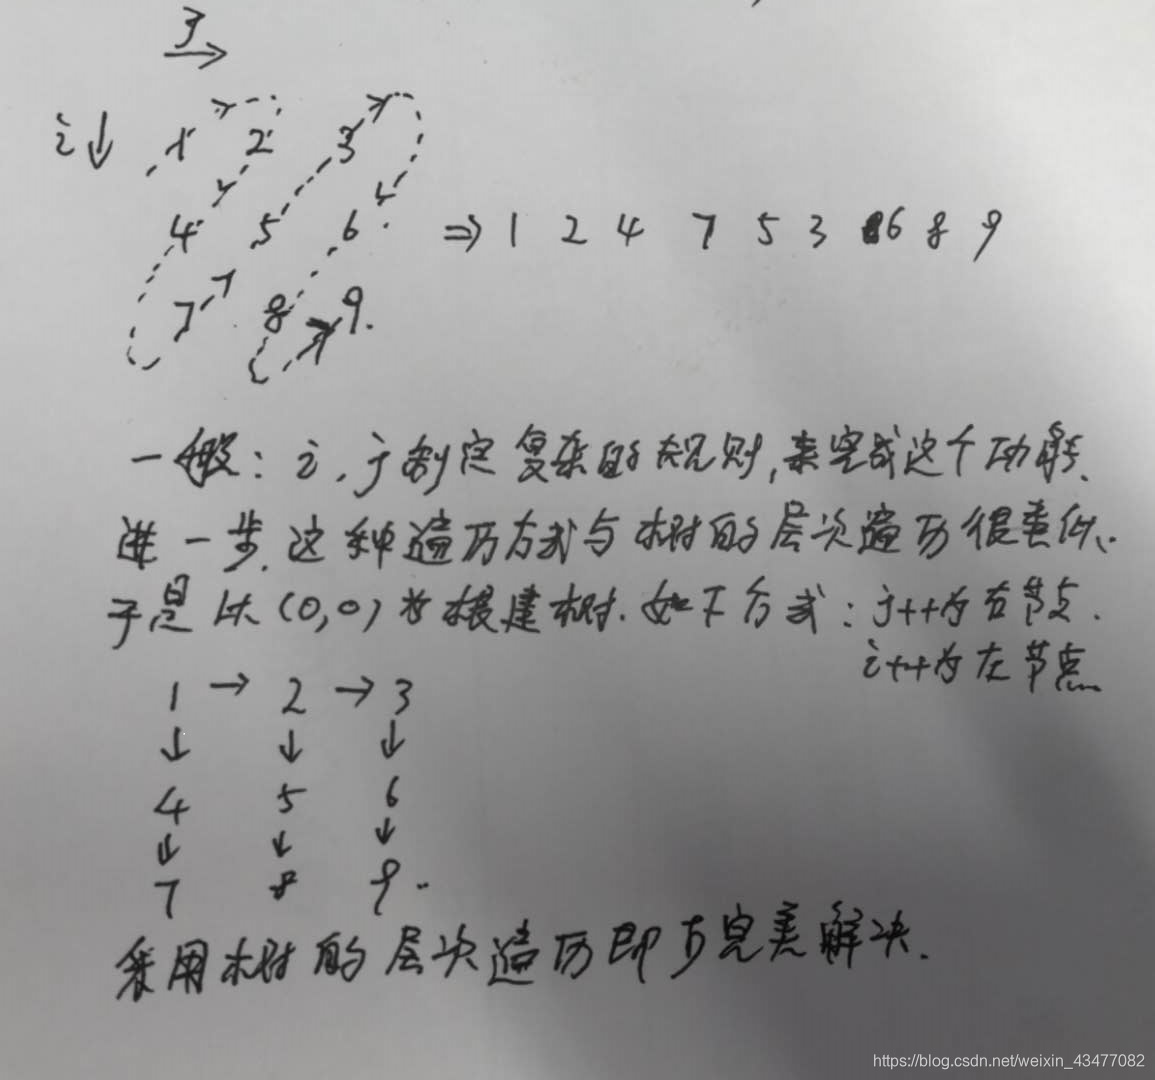 j
i↓ 1 2 3
4 5 6 ⇒ 1 2 4 7 5 3 6 8 9
7 8 9.
一般: i, j 制定复杂的规则,来完成这个功能.
进一步,这种遍历方式与树的层次遍历很类似.
于是以(0,0)为根建树.如下方式: j++为右节点.
i++为左节点
1 → 2 → 3
↓ ↓ ↓
4 5 6
↓ ↓ ↓
7 8 9.
采用树的层次遍历即可完美解决.
https://blog.csdn.net/weixin_43477082